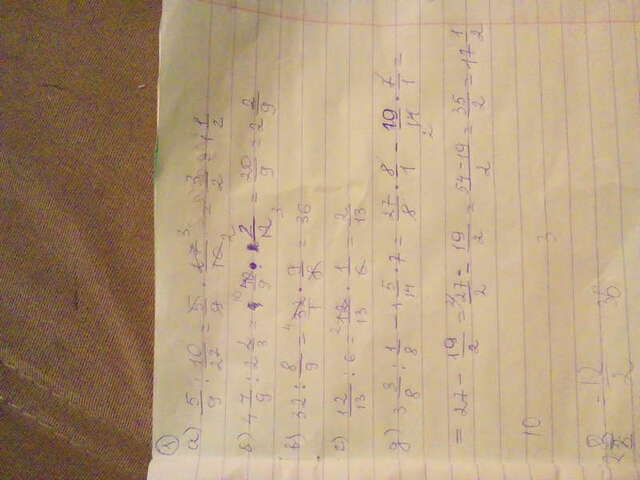 1
а) 5/9 : 10/27 = 5/9 · 27/10 = 3/2 = 1 1/2
б) 4 7/9 : 2 2/3 = 9 · = 20/9 = 2 2/9
в) 32 : 8/9 = 32/1 · 9/8 = 36
г) 12/13 : 6 = 12/13 · 1/6 = 2/13
д) 3 3/8 : 1/8 − 1 5/14 · 7 = 27/8 · 8/1 − 19/14 · 7/1 =
= 27 − 19/2 = 27/2 − 19/2 = 54−19/2 = 35/2 = 17 1/2
10
3
= 12/2 36